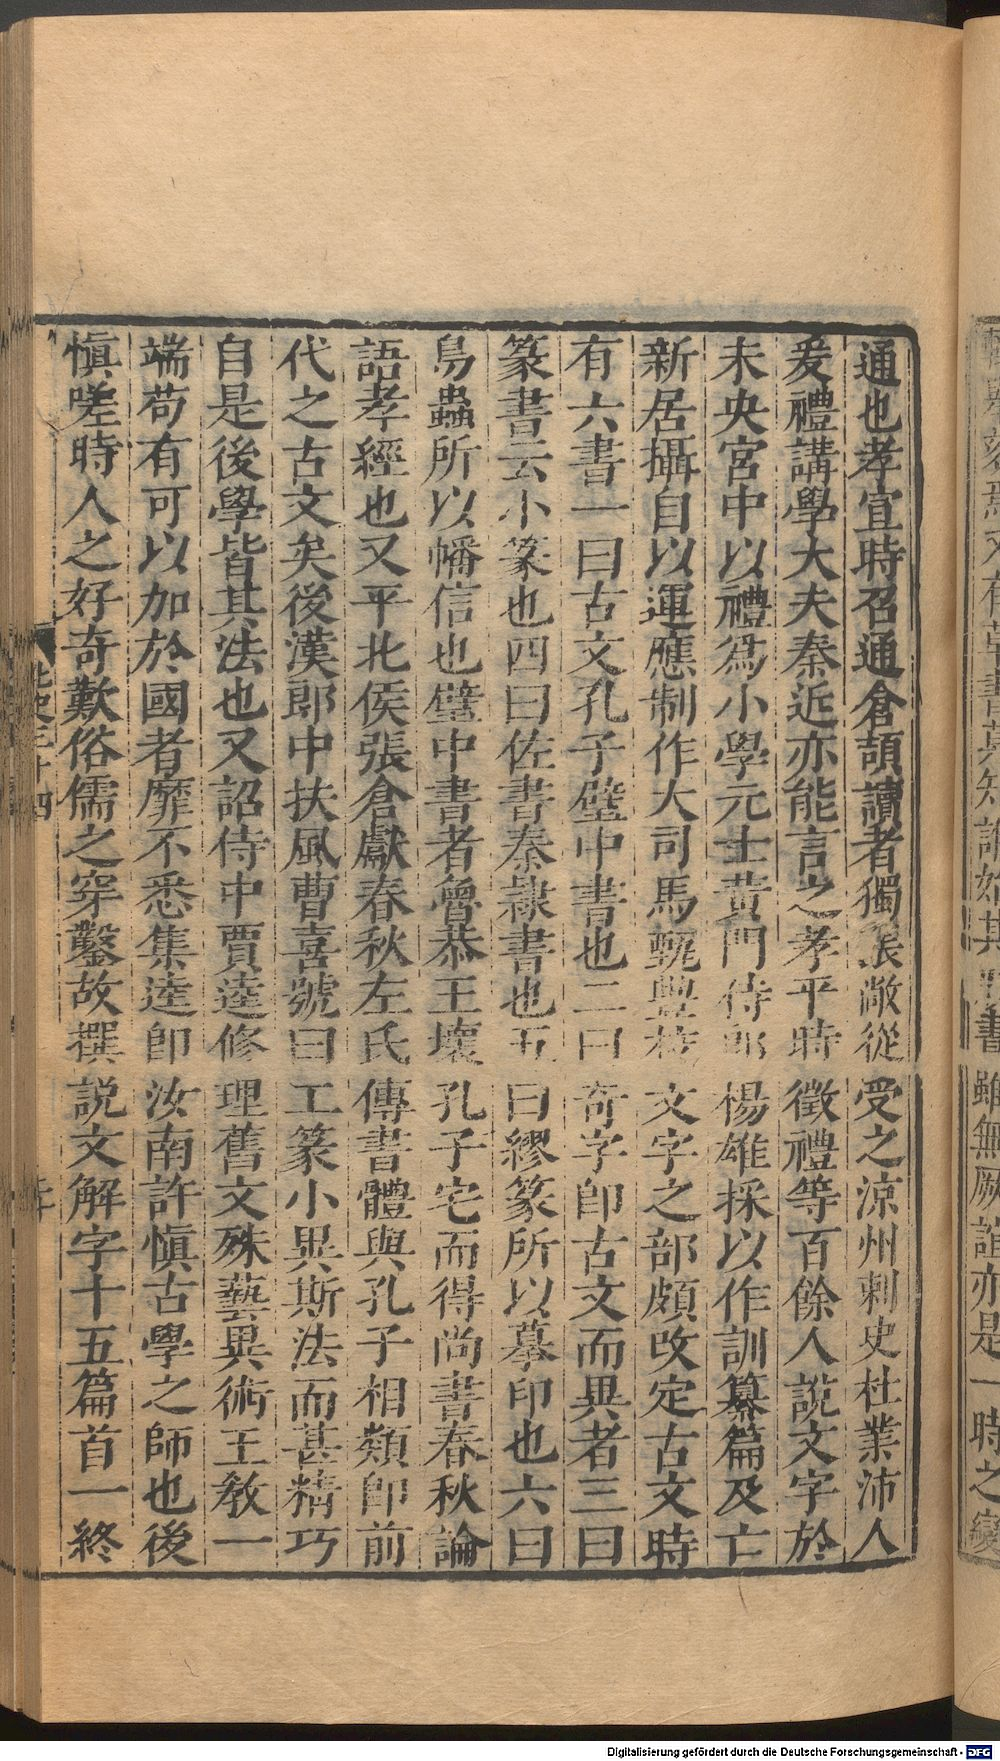 又有草書莫知誰始其 書雖無厥誼亦是一時之變
通也孝宣時召通倉頡讀者獨張敞從受之涼州刺史杜業沛人
爰禮講學大夫秦近亦能言之孝平時徵禮等百餘人說文字於
未央宮中以禮爲小學元士黃門侍郎楊雄採以作訓纂篇及亡
新居攝自以運應制作大司馬甄豐校文字之部頗改定古文時
有六書一曰古文孔子壁中書也二曰奇字卽古文而異者三曰
篆書云小篆也四曰佐書秦隸書也五曰繆篆所以摹印也六曰
鳥蟲所以幡信也壁中書者魯恭王壞孔子宅而得尚書春秋論
語孝經也又平北侯張倉獻春秋左氏傳書體與孔子相類卽前
代之古文矣後漢郎中扶風曹喜號曰工篆小異斯法而甚精巧
自是後學皆其法也又詔侍中賈逵修理舊文殊藝異術王教一
端苟有可以加於國者靡不悉集逵卽汝南許慎古學之師也後
慎嗟時人之好奇歎俗儒之穿鑿故撰說文解字十五篇首一終
北史三十四
Digitalisierung gefördert durch die Deutsche Forschungsgemeinschaft - DFG